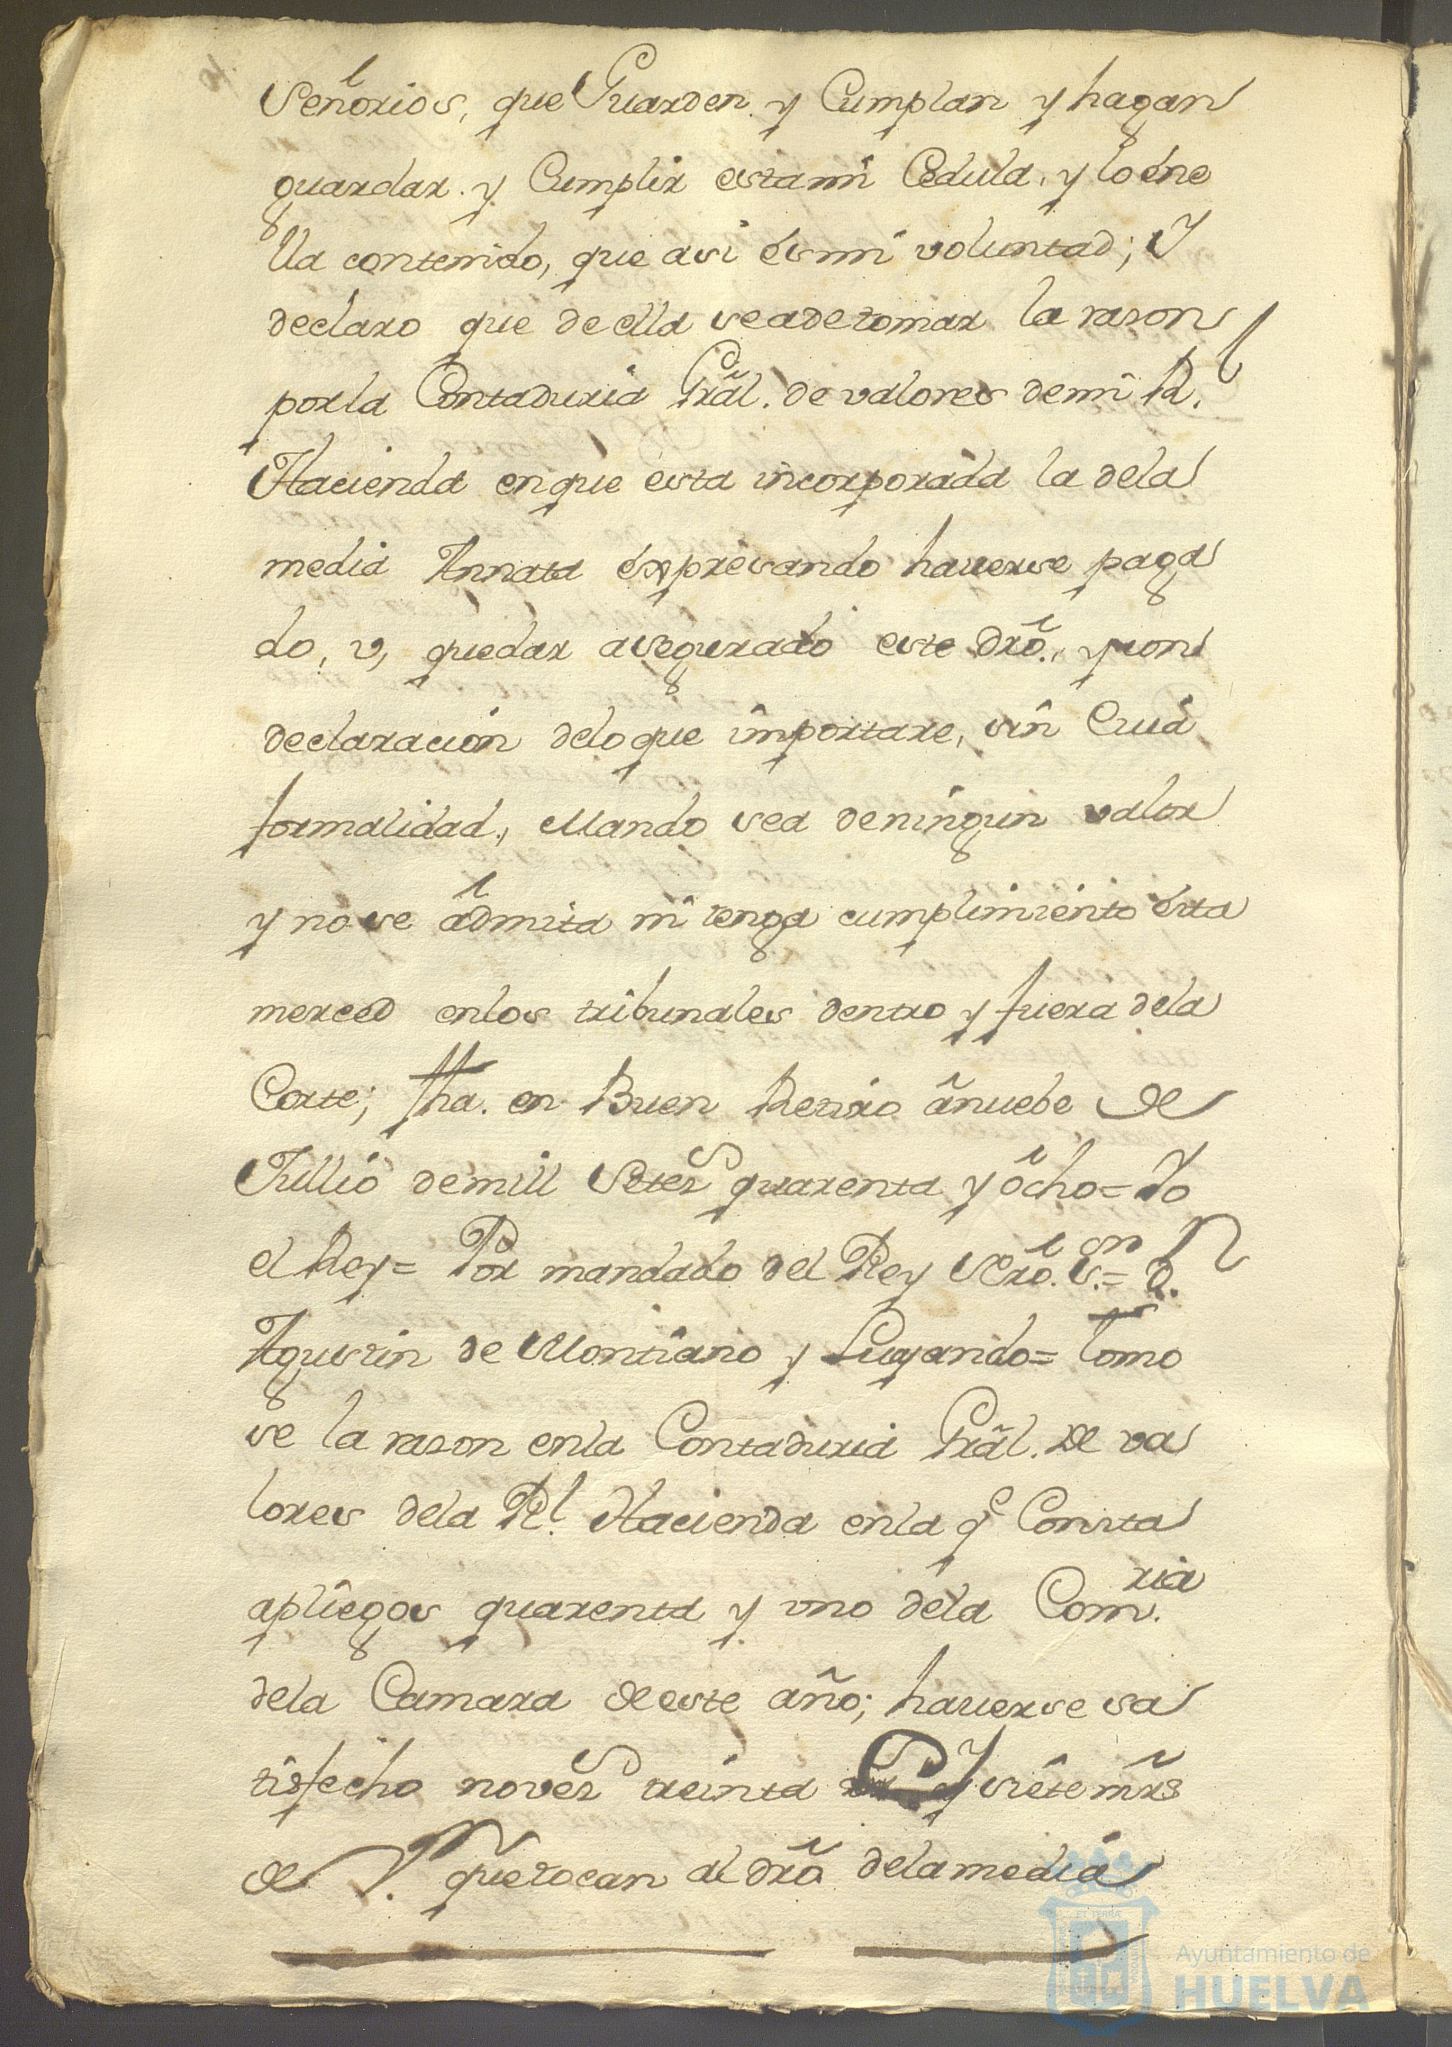 Señorios, que Guarden y Cumplan y hagan
guardar y Cumplir estami Cedula, y lo éne
lla contenido, que asi és mi voluntad; Y
declaro que de ella sea de tomar la rason
por la Contaduria Grãl. de valores de mi Rl.
Hacienda en que ésta incorporada la dela
media Annata éxpresando hauerse paga
do, v, quedar asegurado este drõ., y con
declaracion delo que importare, sin Cuia
formalidad, Mando sea de ningun valor
y no se admita ni tenga cumplimiento ésta
merced enlos tribunales dentro y fuera dela
Corte; fha. en Buen Retiro ã nuebe de
Jullio de mill Setezs quarenta y õcho= Yo
el Rey= Por mandado del Rey Nro. Sr.= Dn.
Agustin de Montiano y Luyando= Tomo
se la rason enla Contaduria Grãl. de va
lores dela Rl. Hacienda enla qe Consta
apliegos quarenta y uno dela Comria.
dela Camara de este año; hauerse sa
tisfecho novezs treinta y siete mrs
de Vn. que tocan al drõ dela media
ET TERRÆ
Ayuntamiento de
HUELVA